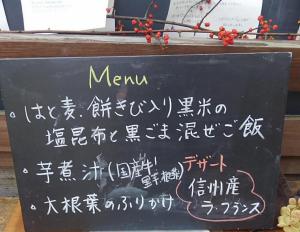 Menu
。はと麦.餅きび入り黒米の
塩昆布と黒ごま混ぜご飯
。芋煮汁(国産牛!
里芋.根菜)
。大根葉のふりかけ
デザート
信州産
ラ・フランス